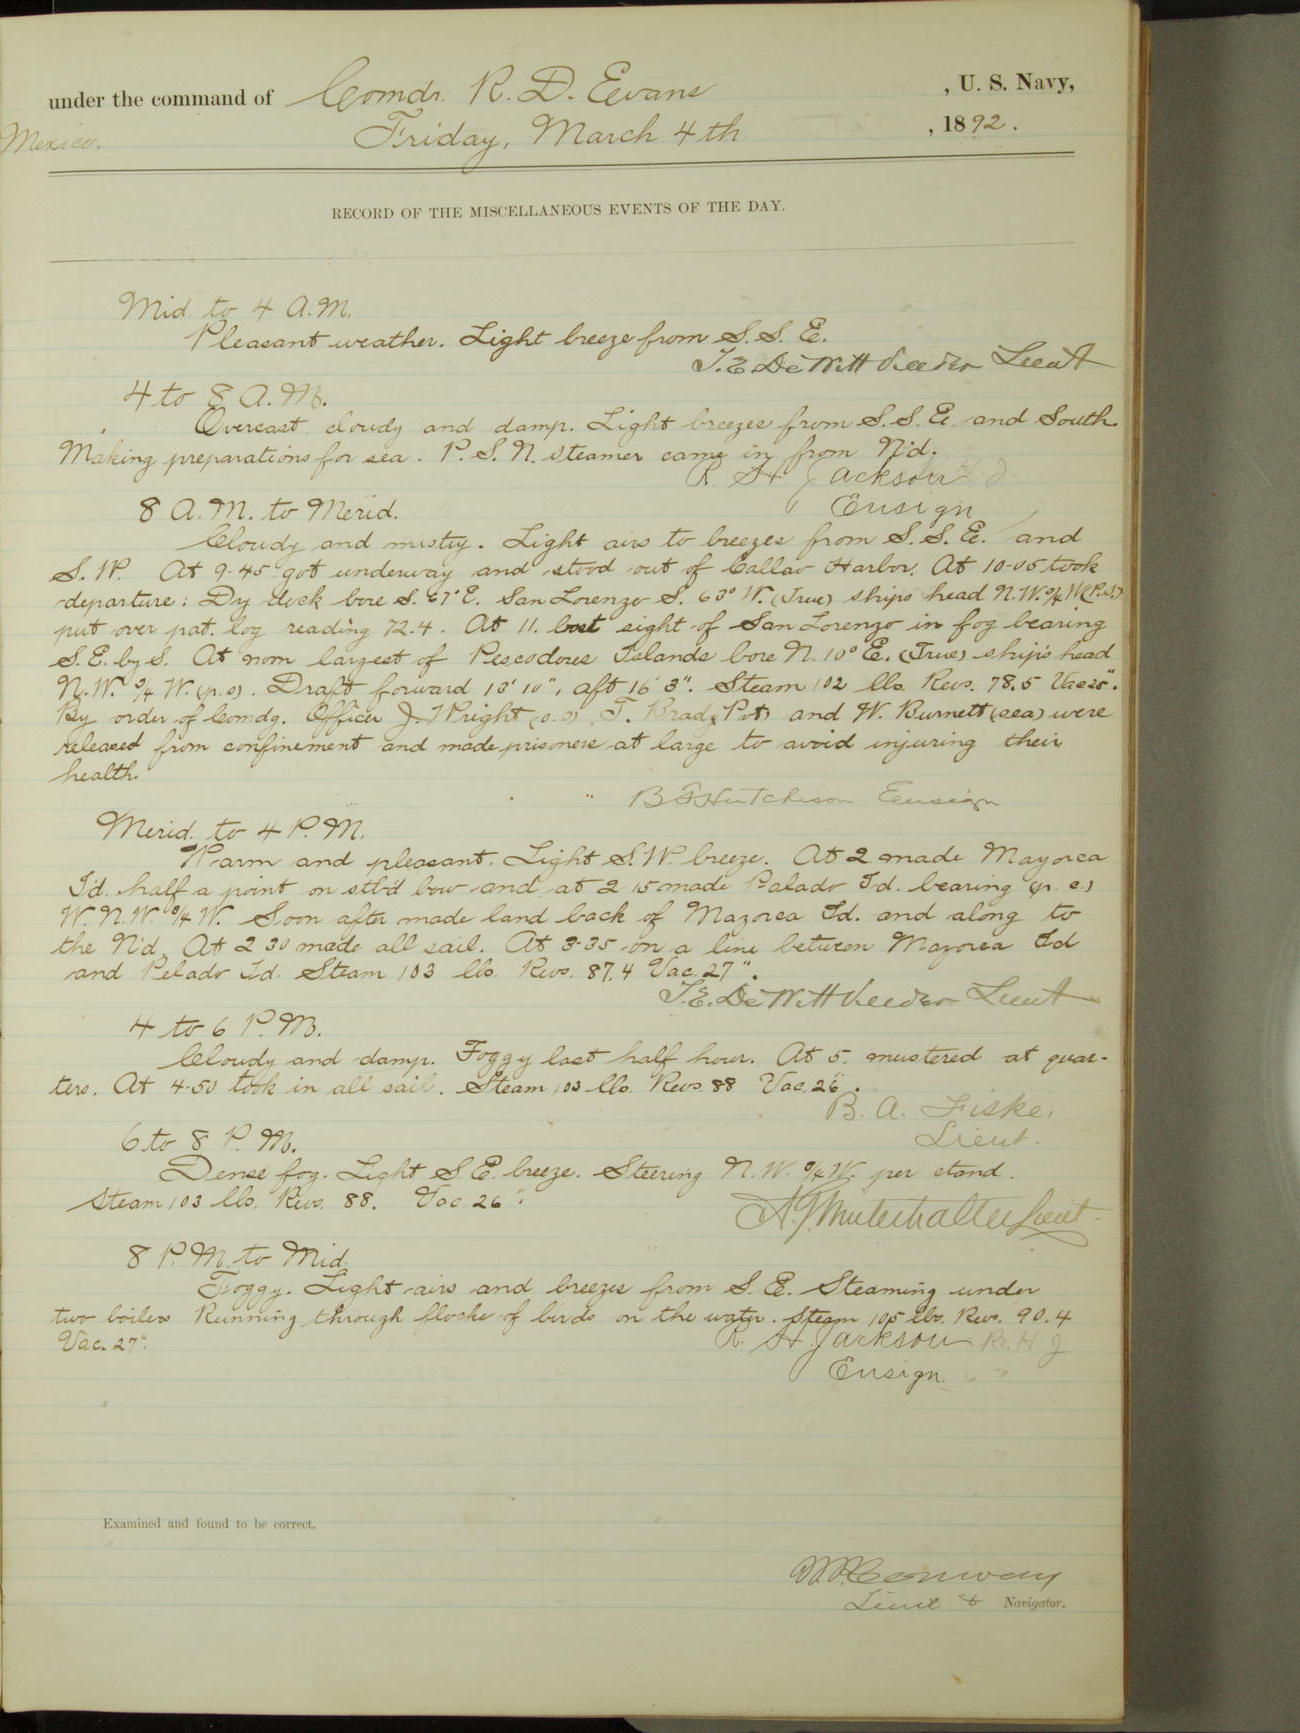 under the command of Comdr. R. D. Evans , U. S. Navy,
Mexico. Friday, March 4th , 1892.
RECORD OF THE MISCELLANEOUS EVENTS OF THE DAY.
Mid. to 4 A.M.
Pleasant weather. Light breeze from S. S. E.
T. E. DeWitt Veeder Lieut
4 to 8 A.M.
Overcast cloudy and damp. Light breezes from S. S. E. and South.
Making preparations for sea. P. S. N. steamer came in from N'd.
R. H. Jackson
Ensign
8 A.M. to Merid.
Cloudy and misty. Light airs to breezes from S. S. E. and
S. W. At 9.45 got underway and stood out of Callao Harbor. At 10.05 took
departure: Dry dock bore S. 67° E. San Lorenzo S. 63° W. (True) ships head N. W. 3/4 W. (P.S.)
put over pat. log reading 72.4. At 11. lost sight of San Lorenzo in fog bearing
S. E. by S. At noon largest of Pescodores Islands bore N. 10° E. (True) ship's head
N. W. 3/4 W. (p.s). Draft forward 13' 10", aft 16' 3". Steam 102 lbs. Revs. 78.5 Vac 25".
By order of Comdg. Officer J. Wright (o.s) T. Brady (Pvt) and W. Burnett (sea) were
released from confinement and made prisoners at large to avoid injuring their
health.
B F Hutchison Ensign
Merid. to 4 P.M.
Warm and pleasant. Light S. W. breeze. At 2 made Mazorca
I'd. half a point on stb'd bow and at 2 15 made Palado Id. bearing (p. c.)
W. N. W. 3/4 W. Soon after made land back of Mazorca Id. and along to
the N'd. At 2 30 made all sail. At 3.35 on a line between Mazorca Id
and Pelado Id. Steam 103 lbs. Revs. 87.4 Vac. 27".
T. E. DeWitt Veeder Lieut
4 to 6 P.M.
Cloudy and damp. Foggy last half hour. At 5. mustered at quar-
ters. At 4.50 took in all sail. Steam 103 lbs. Revs. 88 Vac. 26".
B. A. Fiske,
Lieut.
6 to 8 P.M.
Dense fog. Light S. E. breeze. Steering N. W. 3/4 W. per stand.
Steam 103 lbs. Revs. 88. Vac. 26".
Lieut.
8 P.M. to Mid.
Foggy. Light airs and breezes from S. E. Steaming under
two boilers Running through flocks of birds on the water. Steam 105 lbs. Revs. 90.4
Vac. 27".
R. H. Jackson R. H. J
Ensign.
Examined and found to be correct.
Conway
Lieut & Navigator.